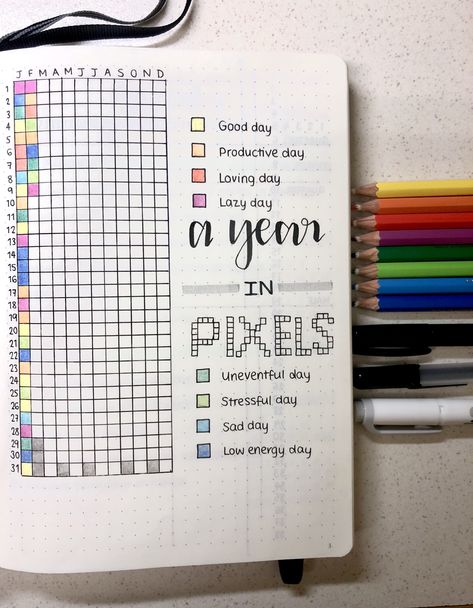 J F M A M J J A S O N D
1
2
3
4
5
6
7
8
9
10
11
12
13
14
15
16
17
18
19
20
21
22
23
24
25
26
27
28
29
30
31
Good day
Productive day
Loving day
Lazy day
a year
IN
PIXELS
Uneventful day
Stressful day
Sad day
Low energy day